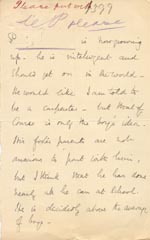 Please put with
is now growing
up. he is intelligent and
should get on in the world.
He would like I am told to
be a Carpenter. but that of
Course is only the boy's idea.
His foster parents are not
anxious to part with him,
but I think that he has done
nearly all he can at School.
He is decidedly above the average
of boys.